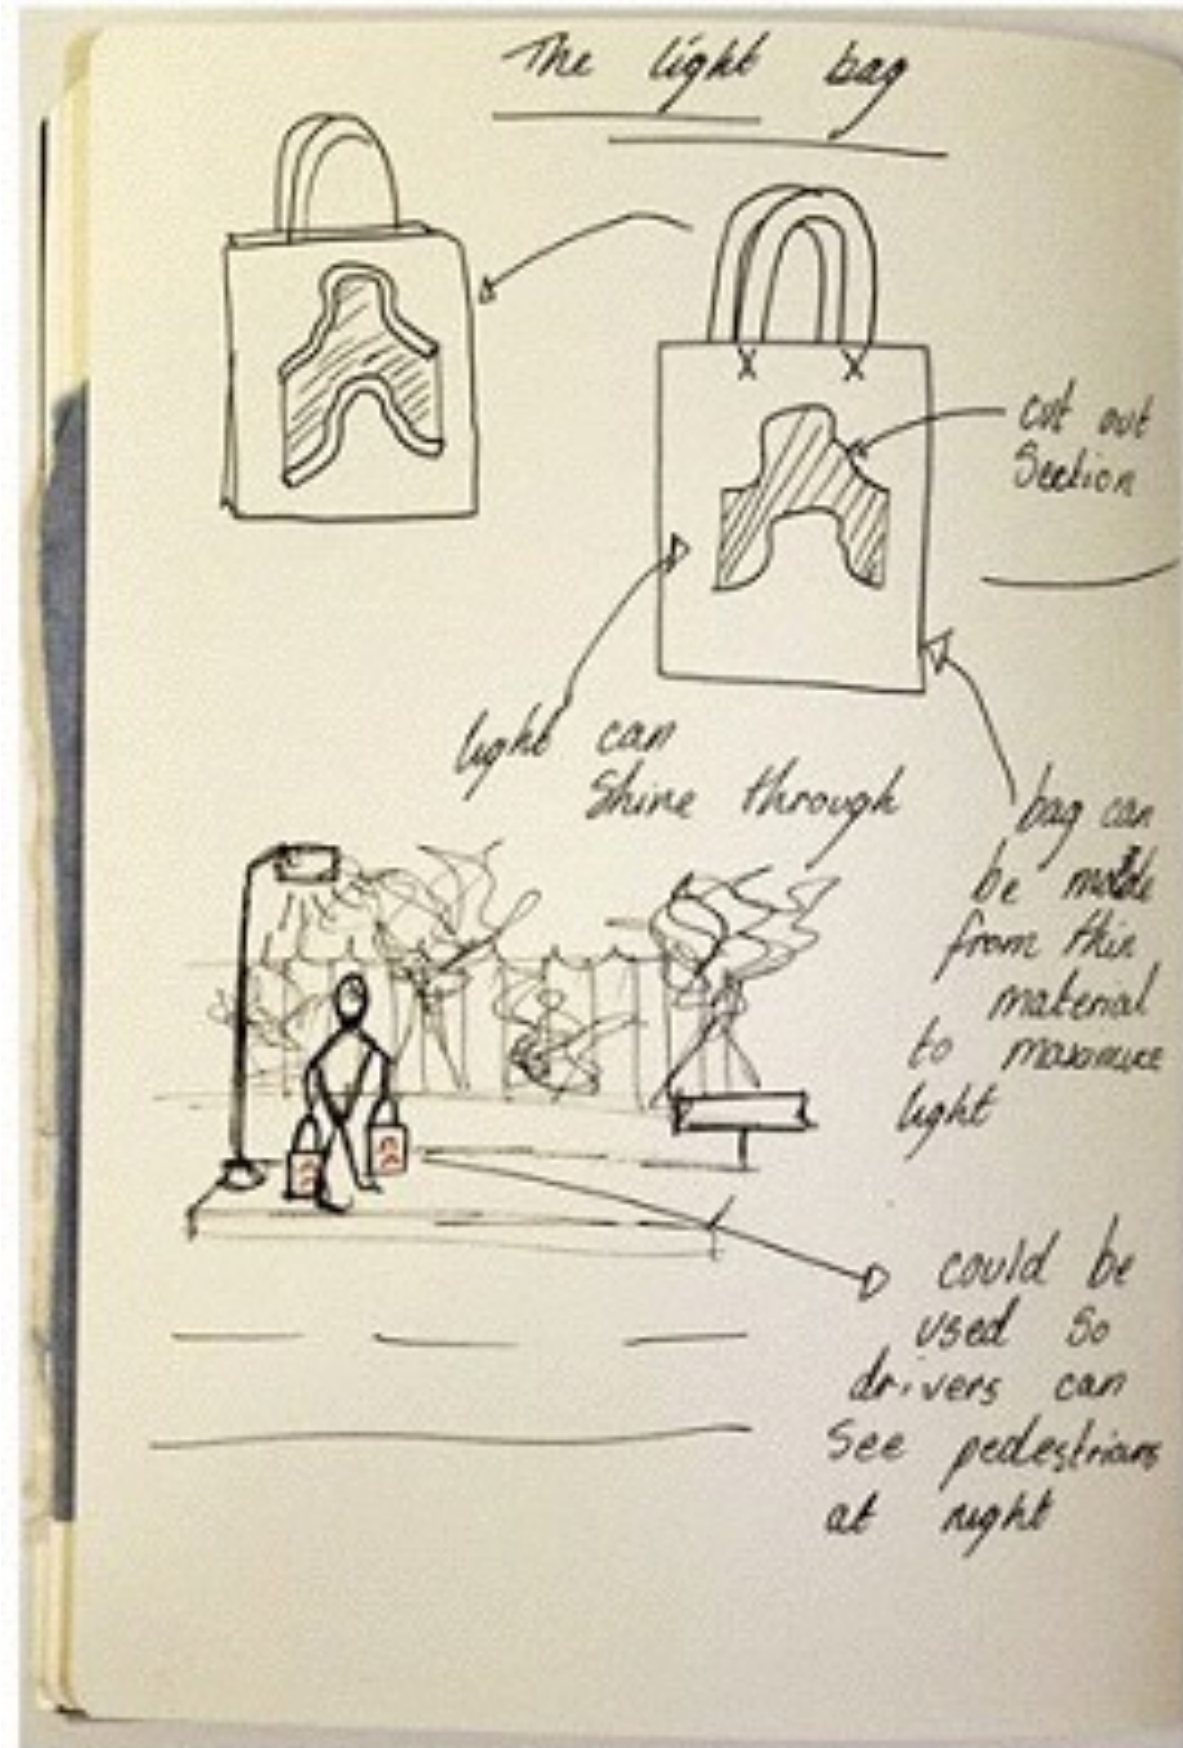 The light bag
cut out
Section
light can
Shine through
bag can
be made
from thin
material
to maximize
light
could be
used so
drivers can
See pedestrians
at night